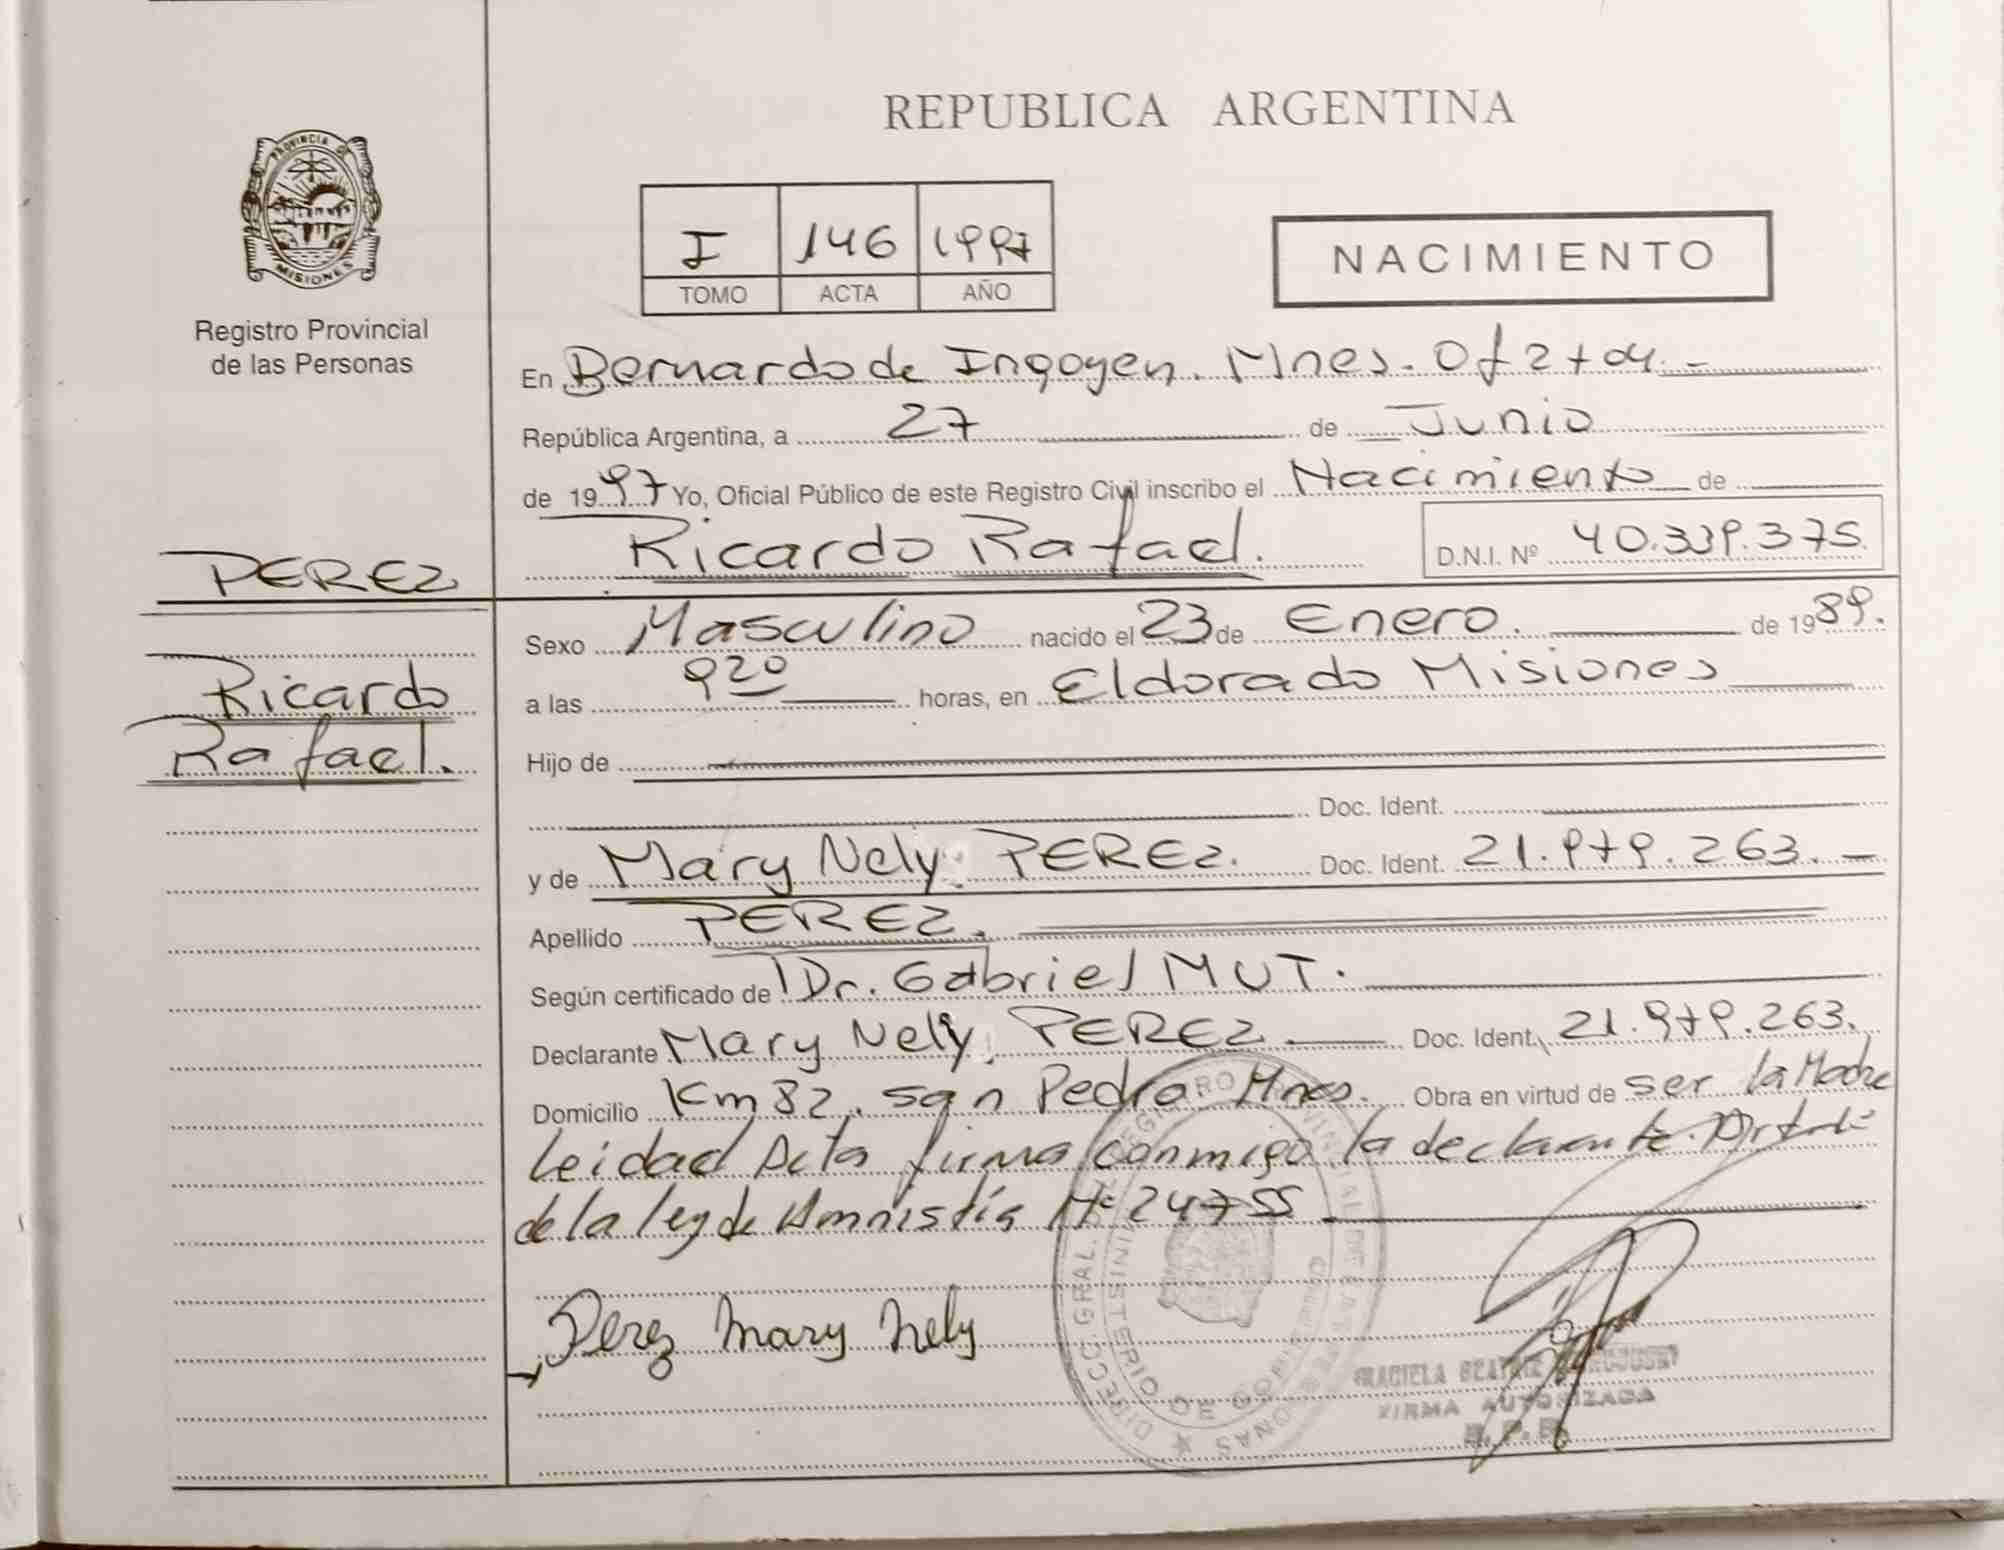 REPUBLICA ARGENTINA
PROVINCIA DE
MISIONES
Registro Provincial
de las Personas
I 146 1997
TOMO ACTA AÑO
NACIMIENTO
En Bernardo de Irigoyen. Mnes. Of 2704.-
República Argentina, a 27 de Junio
de 1997 Yo, Oficial Público de este Registro Civil inscribo el Nacimiento de
Ricardo Rafael. D.N.I. Nº 40.339.375.
PEREZ
Ricardo
Rafael.
Sexo Masculino nacido el 23 de Enero. de 1989.
a las 9 20 horas, en Eldorado Misiones
Hijo de
Doc. Ident.
y de Mary Nely PEREZ. Doc. Ident. 21.979.263.-
Apellido PEREZ.
Según certificado de Dr. Gabriel MUT.
Declarante Mary Nely PEREZ Doc. Ident. 21.979.263.
Domicilio Km 82. San Pedro Mnes. Obra en virtud de ser la Madre
Leidad Acta firma conmigo la declarante.
de la ley de Amnistía Nº 24755
Perez Mary Nely
DIRECC. GRAL. REGISTRO PROVINCIAL DE LAS PERSONAS
MINISTERIO DE GOBIERNO
GRACIELA BEATRIZ
FIRMA AUTORIZADA
R. P. P.